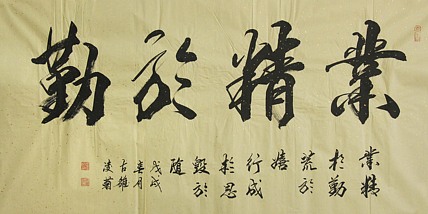 業精於勤
業精
於勤
荒於
嬉
行成
於思
毀於
隨
戊戌
春月
古雒
凌菊